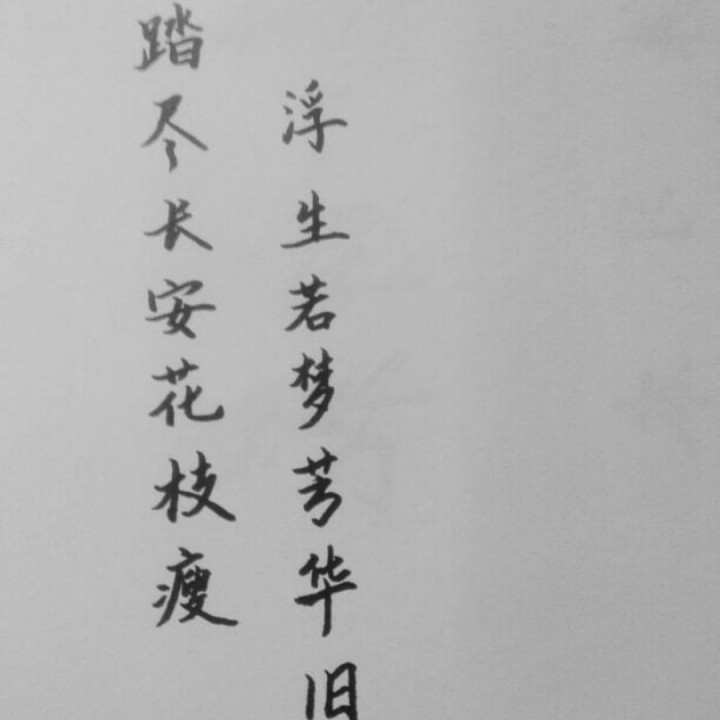 浮生若梦芳华旧
踏尽长安花枝瘦